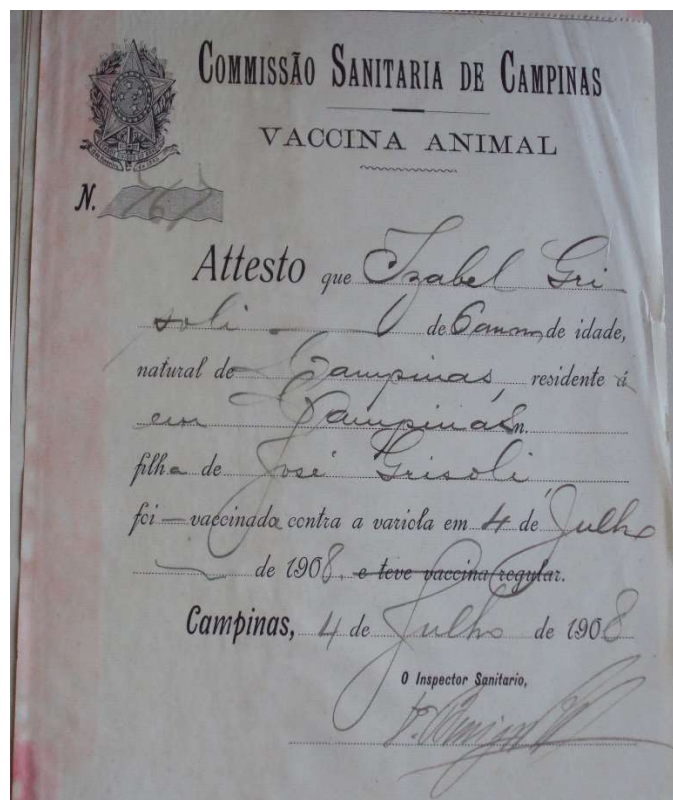 COMMISSÃO SANITARIA DE CAMPINAS
VACCINA ANIMAL
N. 767
Attesto que Izabel Gri
soli de 6 annos de idade,
natural de Campinas, residente á
em Campinas n.
filha de José Grisoli,
foi vaccinada contra a variola em 4 de Julho
de 1908, e teve vaccina regular.
Campinas, 4 de Julho de 1908
O Inspector Sanitario,